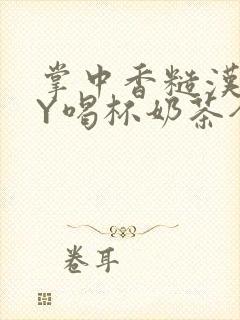 掌中香糙漢
Y喝杯奶茶
卷耳